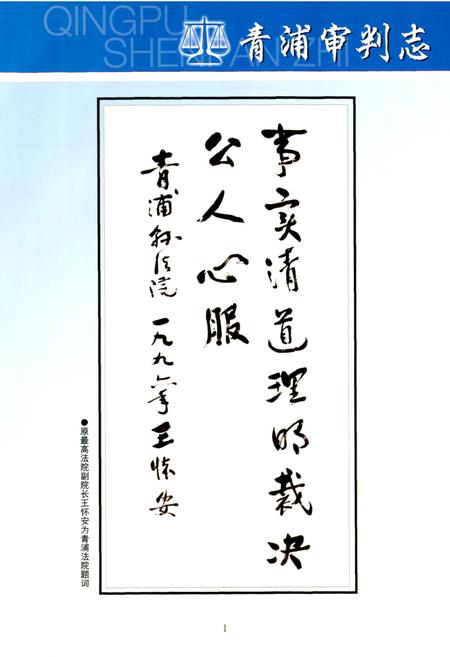 QINGPU
SHENPAN ZHI
青浦审判志
事实清道理明裁决
公人心服
青浦县法院 一九九六年 王怀安
●原最高法院副院长王怀安为青浦法院题词
1